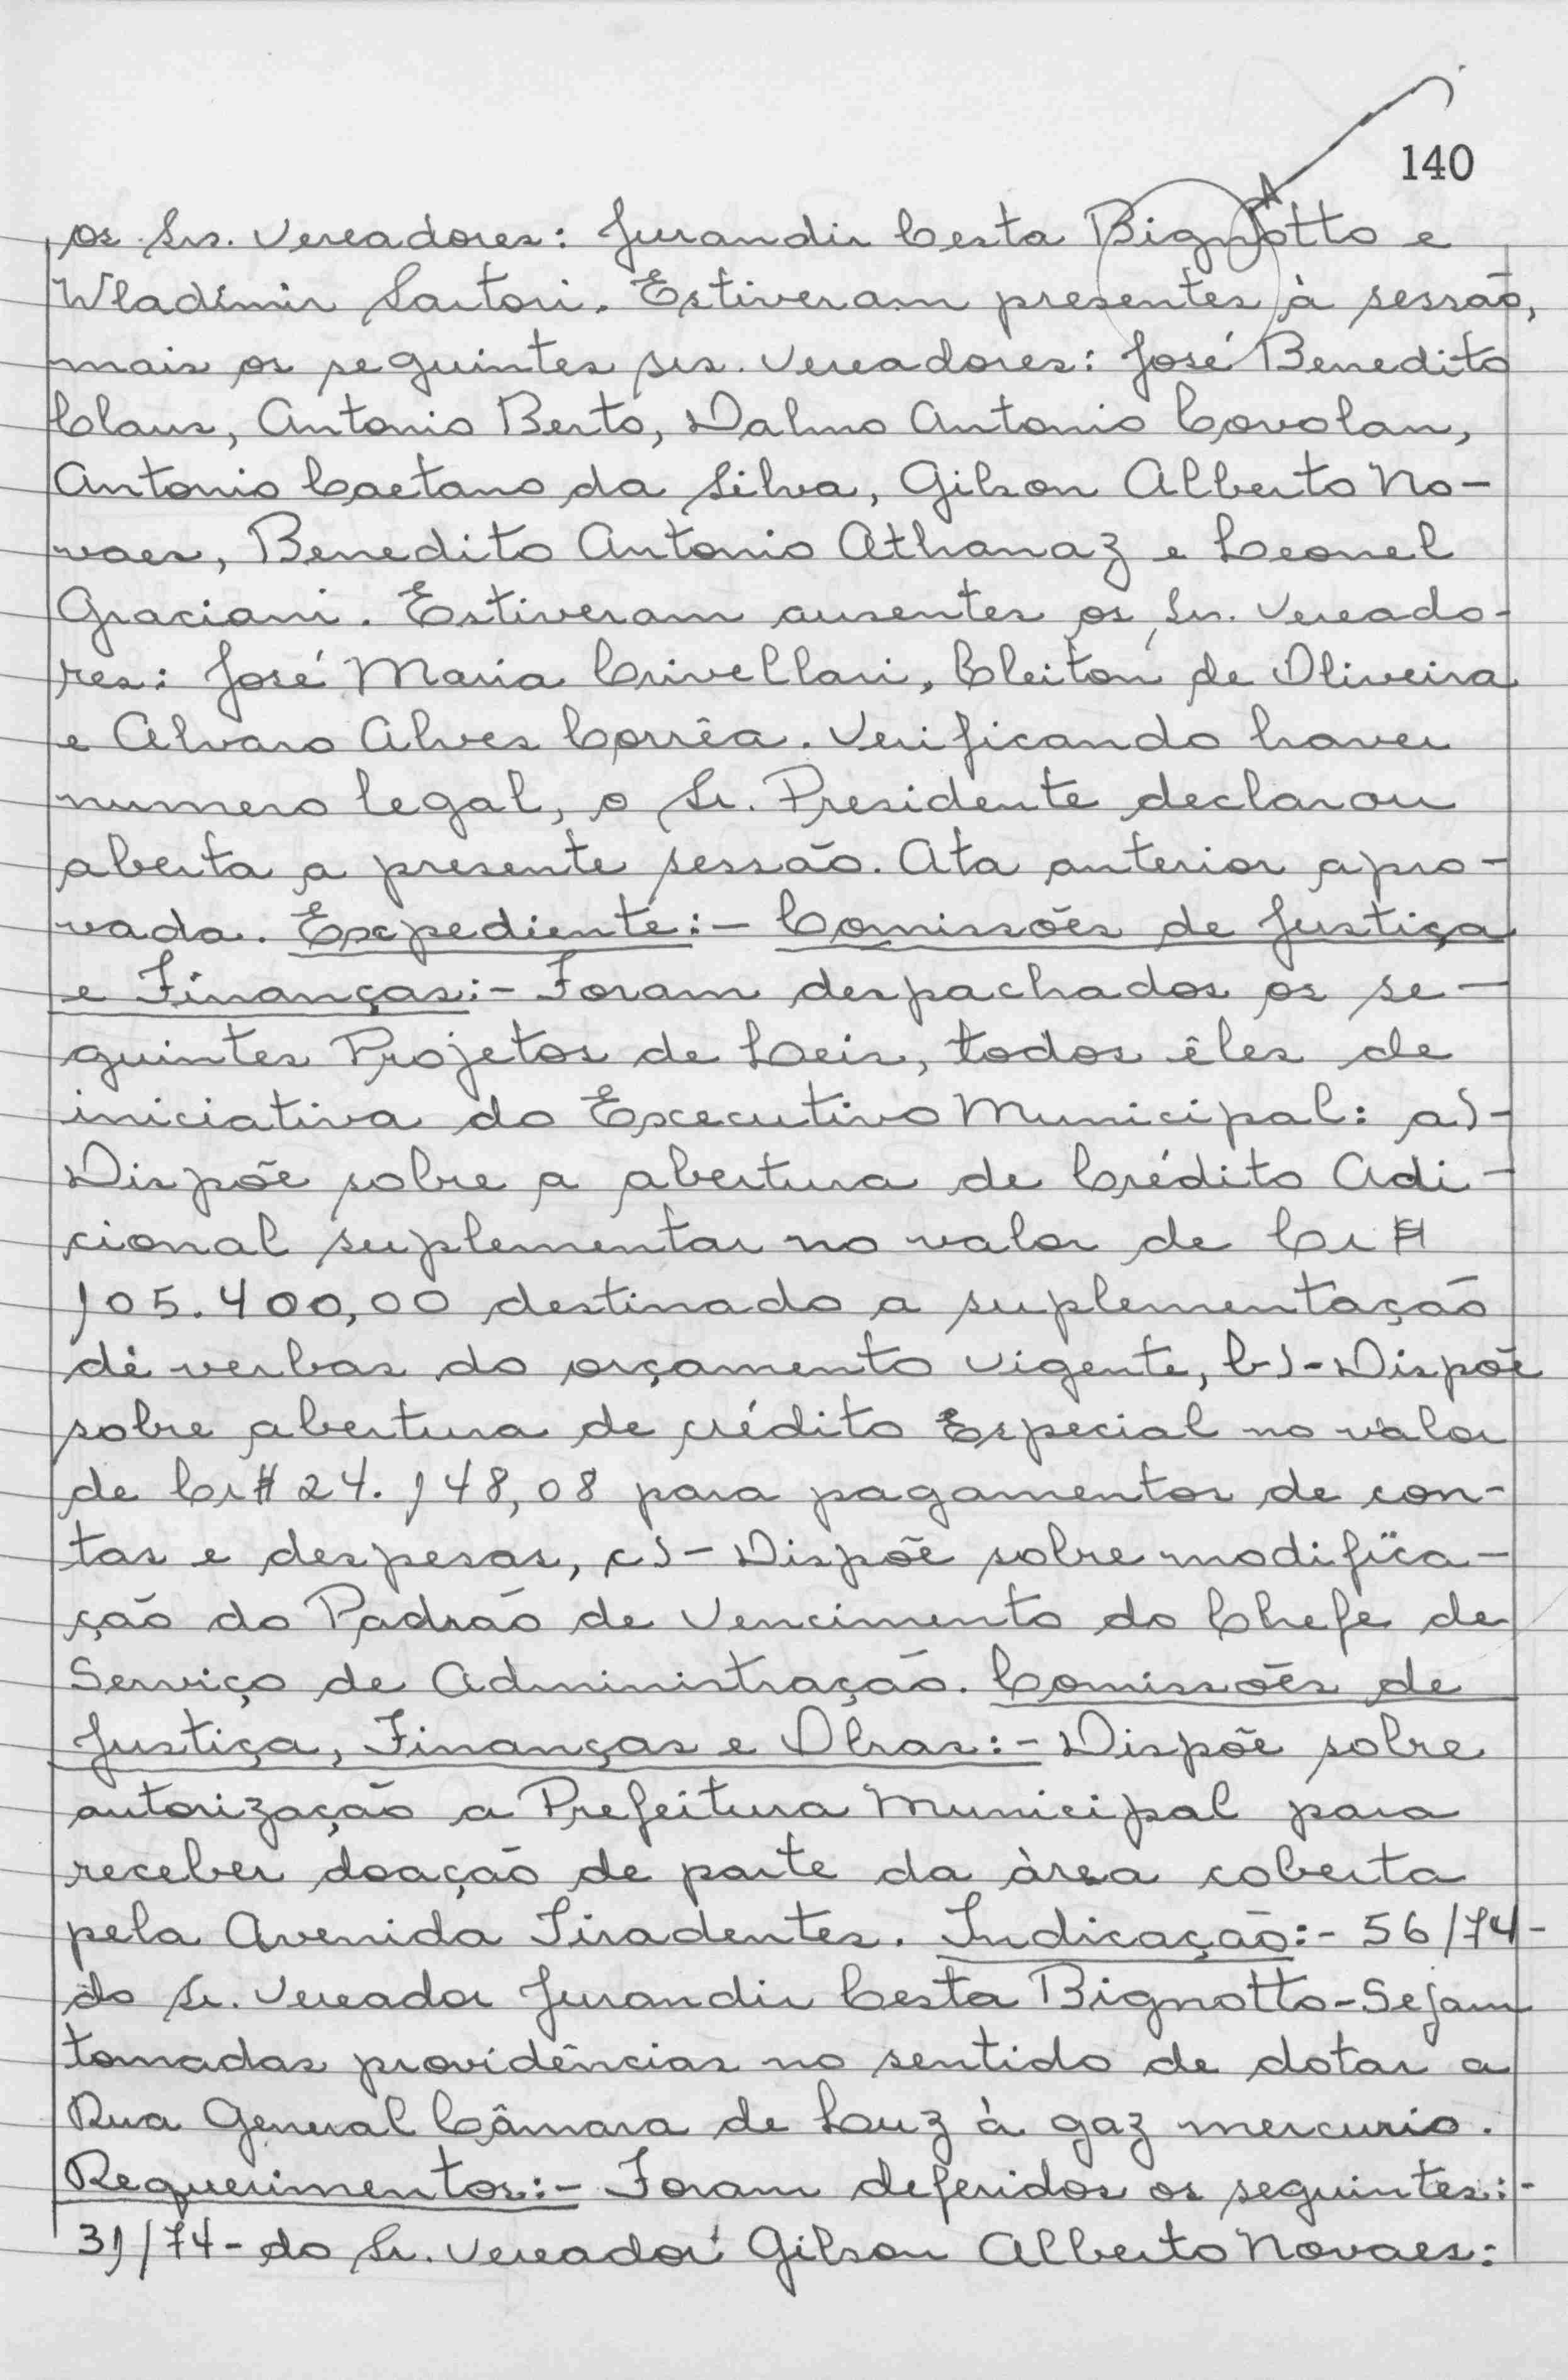 140
os Srs. Vereadores: Jurandir Cesta Bignotto e
Wladimir Sartori. Estiveram presentes à sessão,
mais os seguintes srs. Vereadores: José Benedito
Claus, Antonio Berto, Dalmo Antonio Covolan,
Antonio Caetano da Silva, Gilson Alberto No-
vaes, Benedito Antonio Athanaz e Leonel
Graciani. Estiveram ausentes os Srs. Vereado-
res: José Maria Crivellari, Cleiton de Oliveira
e Alvaro Alves Corrêa. Verificando haver
numero legal, o Sr. Presidente declarou
aberta a presente sessão. Ata anterior apro-
vada. Expediente:- Comissões de Justiça
e Finanças:- Foram despachados os se-
guintes Projetos de Leis, todos êles de
iniciativa do Executivo Municipal: a)-
Dispõe sobre a abertura de Crédito Adi-
cional suplementar no valor de Cr$
105.400,00 destinado a suplementação
de verbas do orçamento vigente, b)- Dispõe
sobre abertura de crédito Especial no valor
de Cr$ 24.148,08 para pagamentos de con-
tas e despesas, c)- Dispõe sobre modifica-
ção do Padrão de Vencimento do Chefe de
Serviço de Administração. Comissões de
Justiça, Finanças e Obras:- Dispõe sobre
autorização a Prefeitura Municipal para
receber doação de parte da àrea coberta
pela Avenida Tiradentes. Indicação:- 56/74-
do Sr. Vereador Jurandir Cesta Bignotto- Sejam
tomadas providências no sentido de dotar a
Rua General Câmara de Luz à gaz mercurio.
Requerimentos:- Foram deferidos os seguintes:-
31/74- do Sr. Vereador Gilson Alberto Novaes: